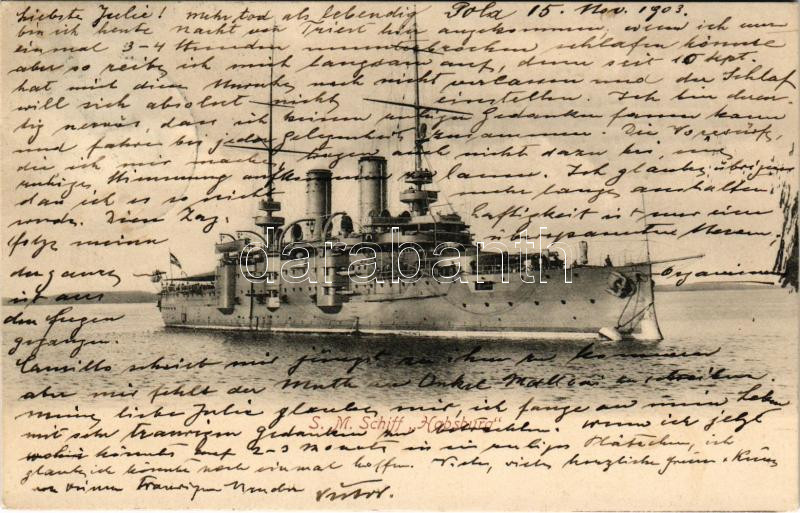 Liebste Julie! mehr tod als lebendig Pola 15. Nov. 1903.
bin ich heute Nacht von Triest hier angekommen, wenn ich nur
einmal 3-4 Stunden ununterbrochen schlafen könnte
aber so reibe ich mich langsam auf, denn seit 10 Sept.
hat mich diese Unruhe noch nicht verlassen und der Schlaf
will sich absolut nicht einstellen. Ich bin
nervös, dass ich keinen ruhigen Gedanken fassen kann
und fahre bei jeder Gelegenheit zusammen. Die Vorwürfe
die ich mir mache, tragen auch nicht dazu bei,
ruhige Stimmung aufkommen zu lassen. Ich glaube übrigens
das ich es so nicht mehr lange aushalten
werde. Diese Zag-
haftigkeit ist nur eine
Folge meines
überspannten Nerven,
der ganze
Organismus
ist aus
den Fugen
gegangen.
Camillo schrieb mir jüngst zu ihm zu kommen
aber mir fehlt der Muth an Onkel zu schreiben.
Meine liebe Julie glaube mir ich fange an mein Leben
mit sehr traurigen Gedanken zu betrachten. wenn ich jetzt
wohin könnte auf 2-3 Monate in ein ruhiges Plätzchen, ich
glaube ich könnte noch einmal hoffen. Viele, viele herzliche Grüsse + Küsse
von Deinem traurigen Bruder Victor.
darabanth
S. M. Schiff „Habsburg"